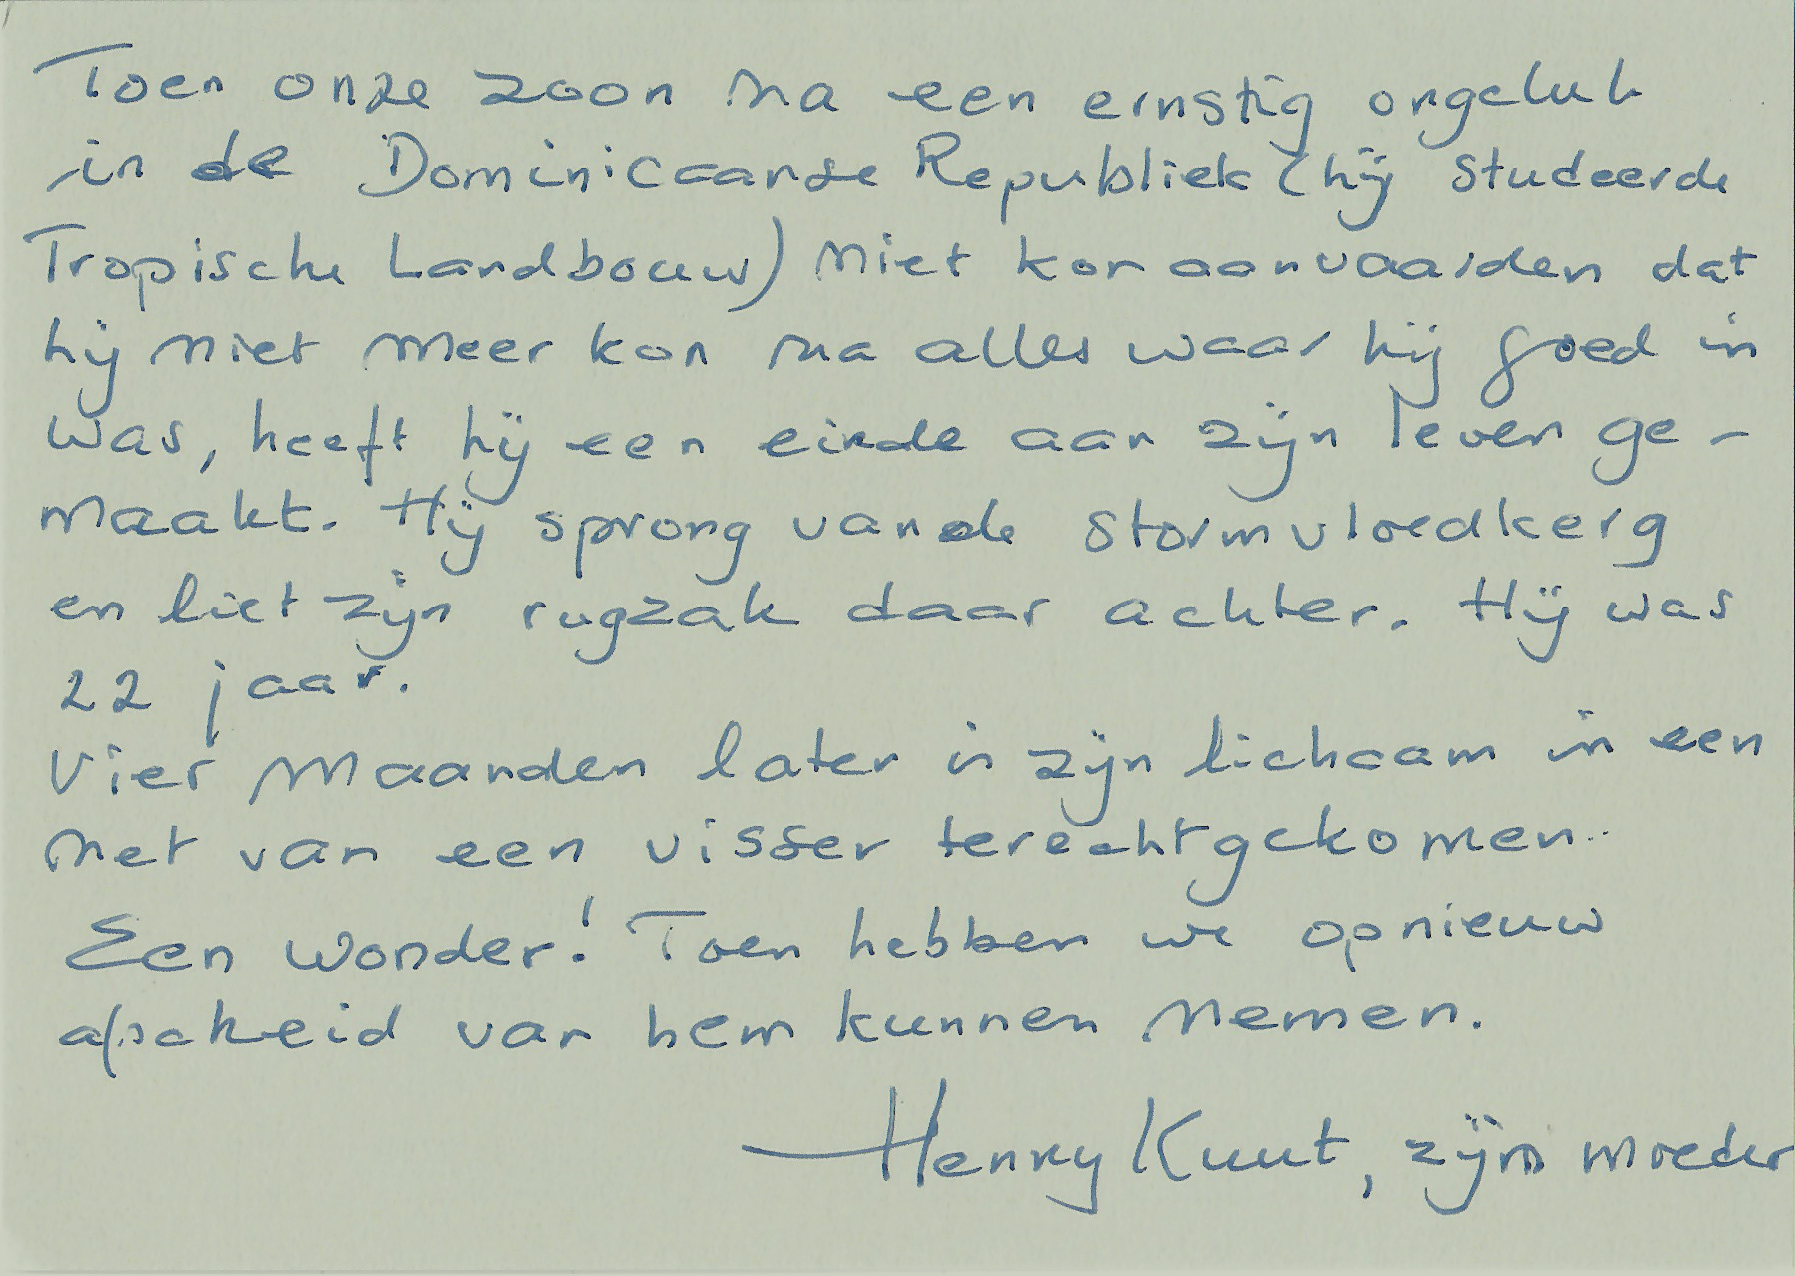 Toen onze zoon na een ernstig ongeluk
in de Dominicaanse Republiek (hij studeerde
Tropische Landbouw) niet kon aanvaarden dat
hij niet meer kon na alles waar hij goed in
was, heeft hij een einde aan zijn leven ge-
maakt. Hij sprong van de stormvloedkerg
en liet zijn rugzak daar achter. Hij was
22 jaar.
Vier maanden later is zijn lichaam in een
net van een visser terechtgekomen..
Een wonder! Toen hebben we opnieuw
afscheid van hem kunnen nemen.
Henny Kuut, zijn moeder